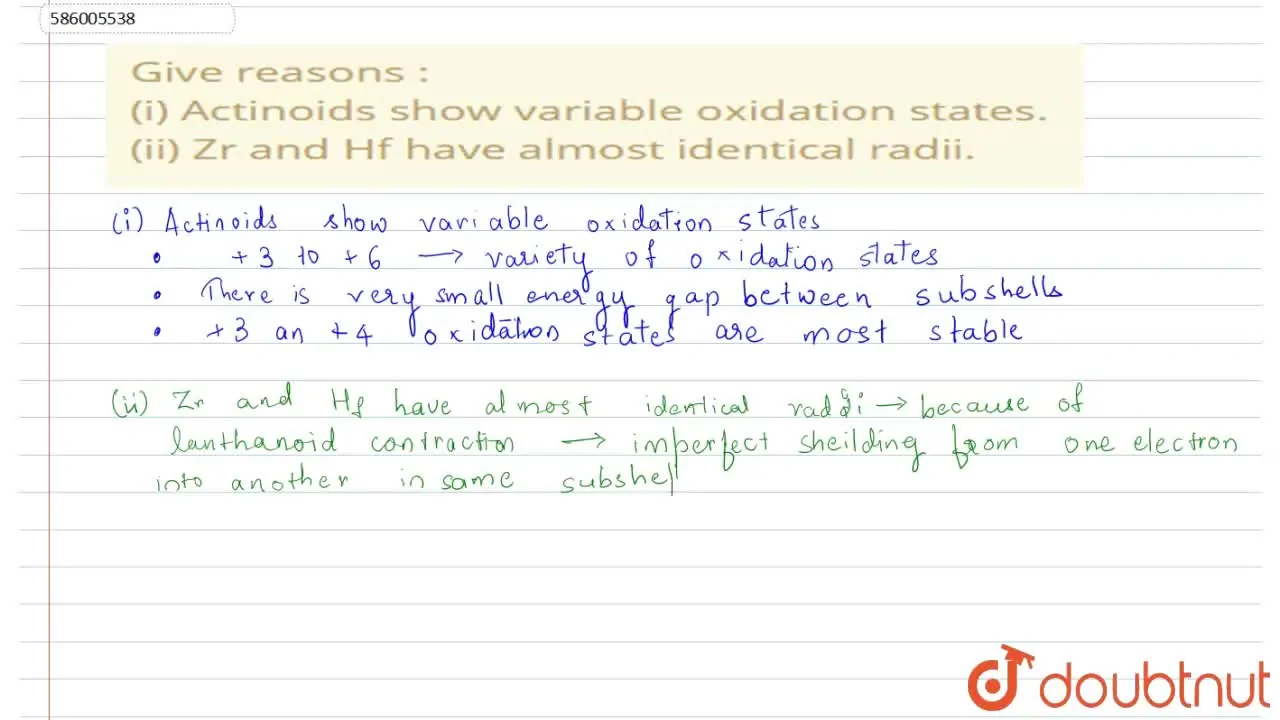 586005538
Give reasons :
(i) Actinoids show variable oxidation states.
(ii) Zr and Hf have almost identical radii.
(i) Actinoids show variable oxidation states
• +3 to +6 → variety of oxidation states
• There is very small energy gap between subshells
• +3 an +4 oxidation states are most stable
(ii) Zr and Hf have almost identical raddi → because of
lanthanoid contraction → imperfect sheilding from one electron
into another in same subshel
doubtnut